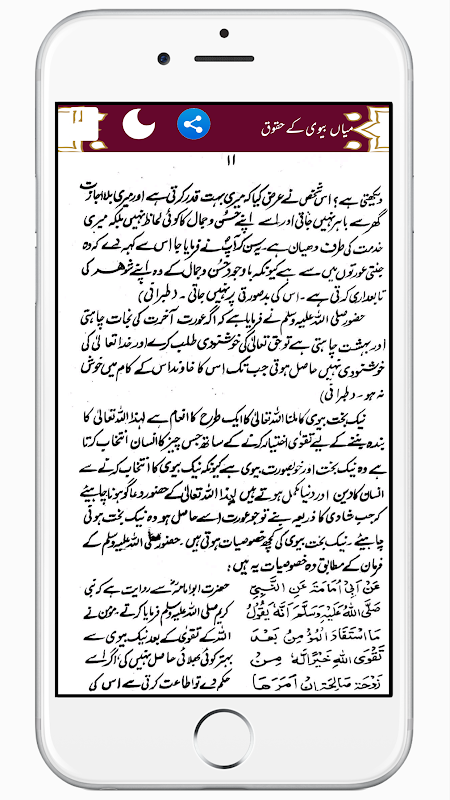 میاں بیوی کے حقوق
۱۱
دیکھتی ہے؟ اس شخص نے عرض کیا کہ میری بہت قدر کرتی ہے اور میری بلا اجازت
گھر سے باہر نہیں جاتی اور اسے اپنے حسن و جمال کا کوئی لحاظ نہیں بلکہ میری
خدمت کی طرف دھیان ہے۔ یہ سن کر آپ نے فرمایا جا اس سے کہہ دے کہ وہ
جنتی عورتوں میں سے ہے کیونکہ باوجود حسن و جمال کے وہ اپنے شوہر کی
تابعداری کرتی ہے۔ اس کی بدصورتی پر نہیں جاتی۔ (طبرانی)
حضور صلی اللہ علیہ وسلم نے فرمایا ہے کہ اگر عورت آخرت کی نجات چاہتی
اور بہشت چاہتی ہے تو حق تعالیٰ کی خوشنودی طلب کرے اور خدا تعالیٰ کی
خوشنودی نہیں حاصل ہوتی جب تک اس کا خاوند اس کے کام میں خوش
نہ ہو۔ (طبرانی)
نیک بخت بیوی کا ملنا اللہ تعالیٰ کا ایک طرح کا انعام ہے لہٰذا اللہ تعالیٰ کا
بندہ بننے کے لیے تقویٰ اختیار کرنے کے ساتھ جس چیز کا انسان انتخاب کرتا
ہے وہ نیک بخت اور خوبصورت بیوی ہے کیونکہ نیک بیوی کا انتخاب کرنے سے
انسان کا دین اور دنیا مکمل ہوتے ہیں لہٰذا اللہ تعالیٰ کے حضور دعا گو ہونا چاہیئے
کہ جب شادی کا ذریعہ بنے تو جو عورت اسے حاصل ہو وہ نیک بخت ہونی
چاہیئے۔ نیک بخت بیوی کی کچھ خصوصیات ہوتی ہیں۔ حضور صلی اللہ علیہ وسلم کے
فرمان کے مطابق وہ خصوصیات یہ ہیں:
عَنْ اَبِیْ اُمَامَةَ عَنِ النَّبِیِّ
صَلَّی اللهُ عَلَیْهِ وَسَلَّمَ اَنَّهٗ یَقُوْلُ
مَا اسْتَفَادَ الْمُؤْمِنُ بَعْدَ
تَقْوَی اللهِ خَیْرًا لَّهٗ مِنْ
زَوْجَةٍ صَالِحَةٍ اِنْ اَمَرَهَا
حضرت ابو امامہؓ سے روایت ہے کہ نبی
کریم صلی اللہ علیہ وسلم فرمایا کرتے، مومن نے
اللہ کے تقویٰ کے بعد نیک بیوی سے
بہتر کوئی بھلائی حاصل نہیں کی اگر اسے
حکم دے تو اطاعت کرتی ہے اس کی